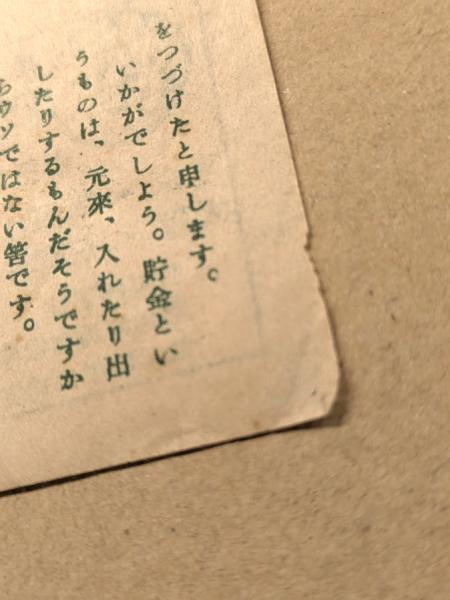 をつづけたと申します。
いかがでしよう。貯金とい
うものは、元來、入れたり出
したりするもんだそうですか
らウソではない筈です。